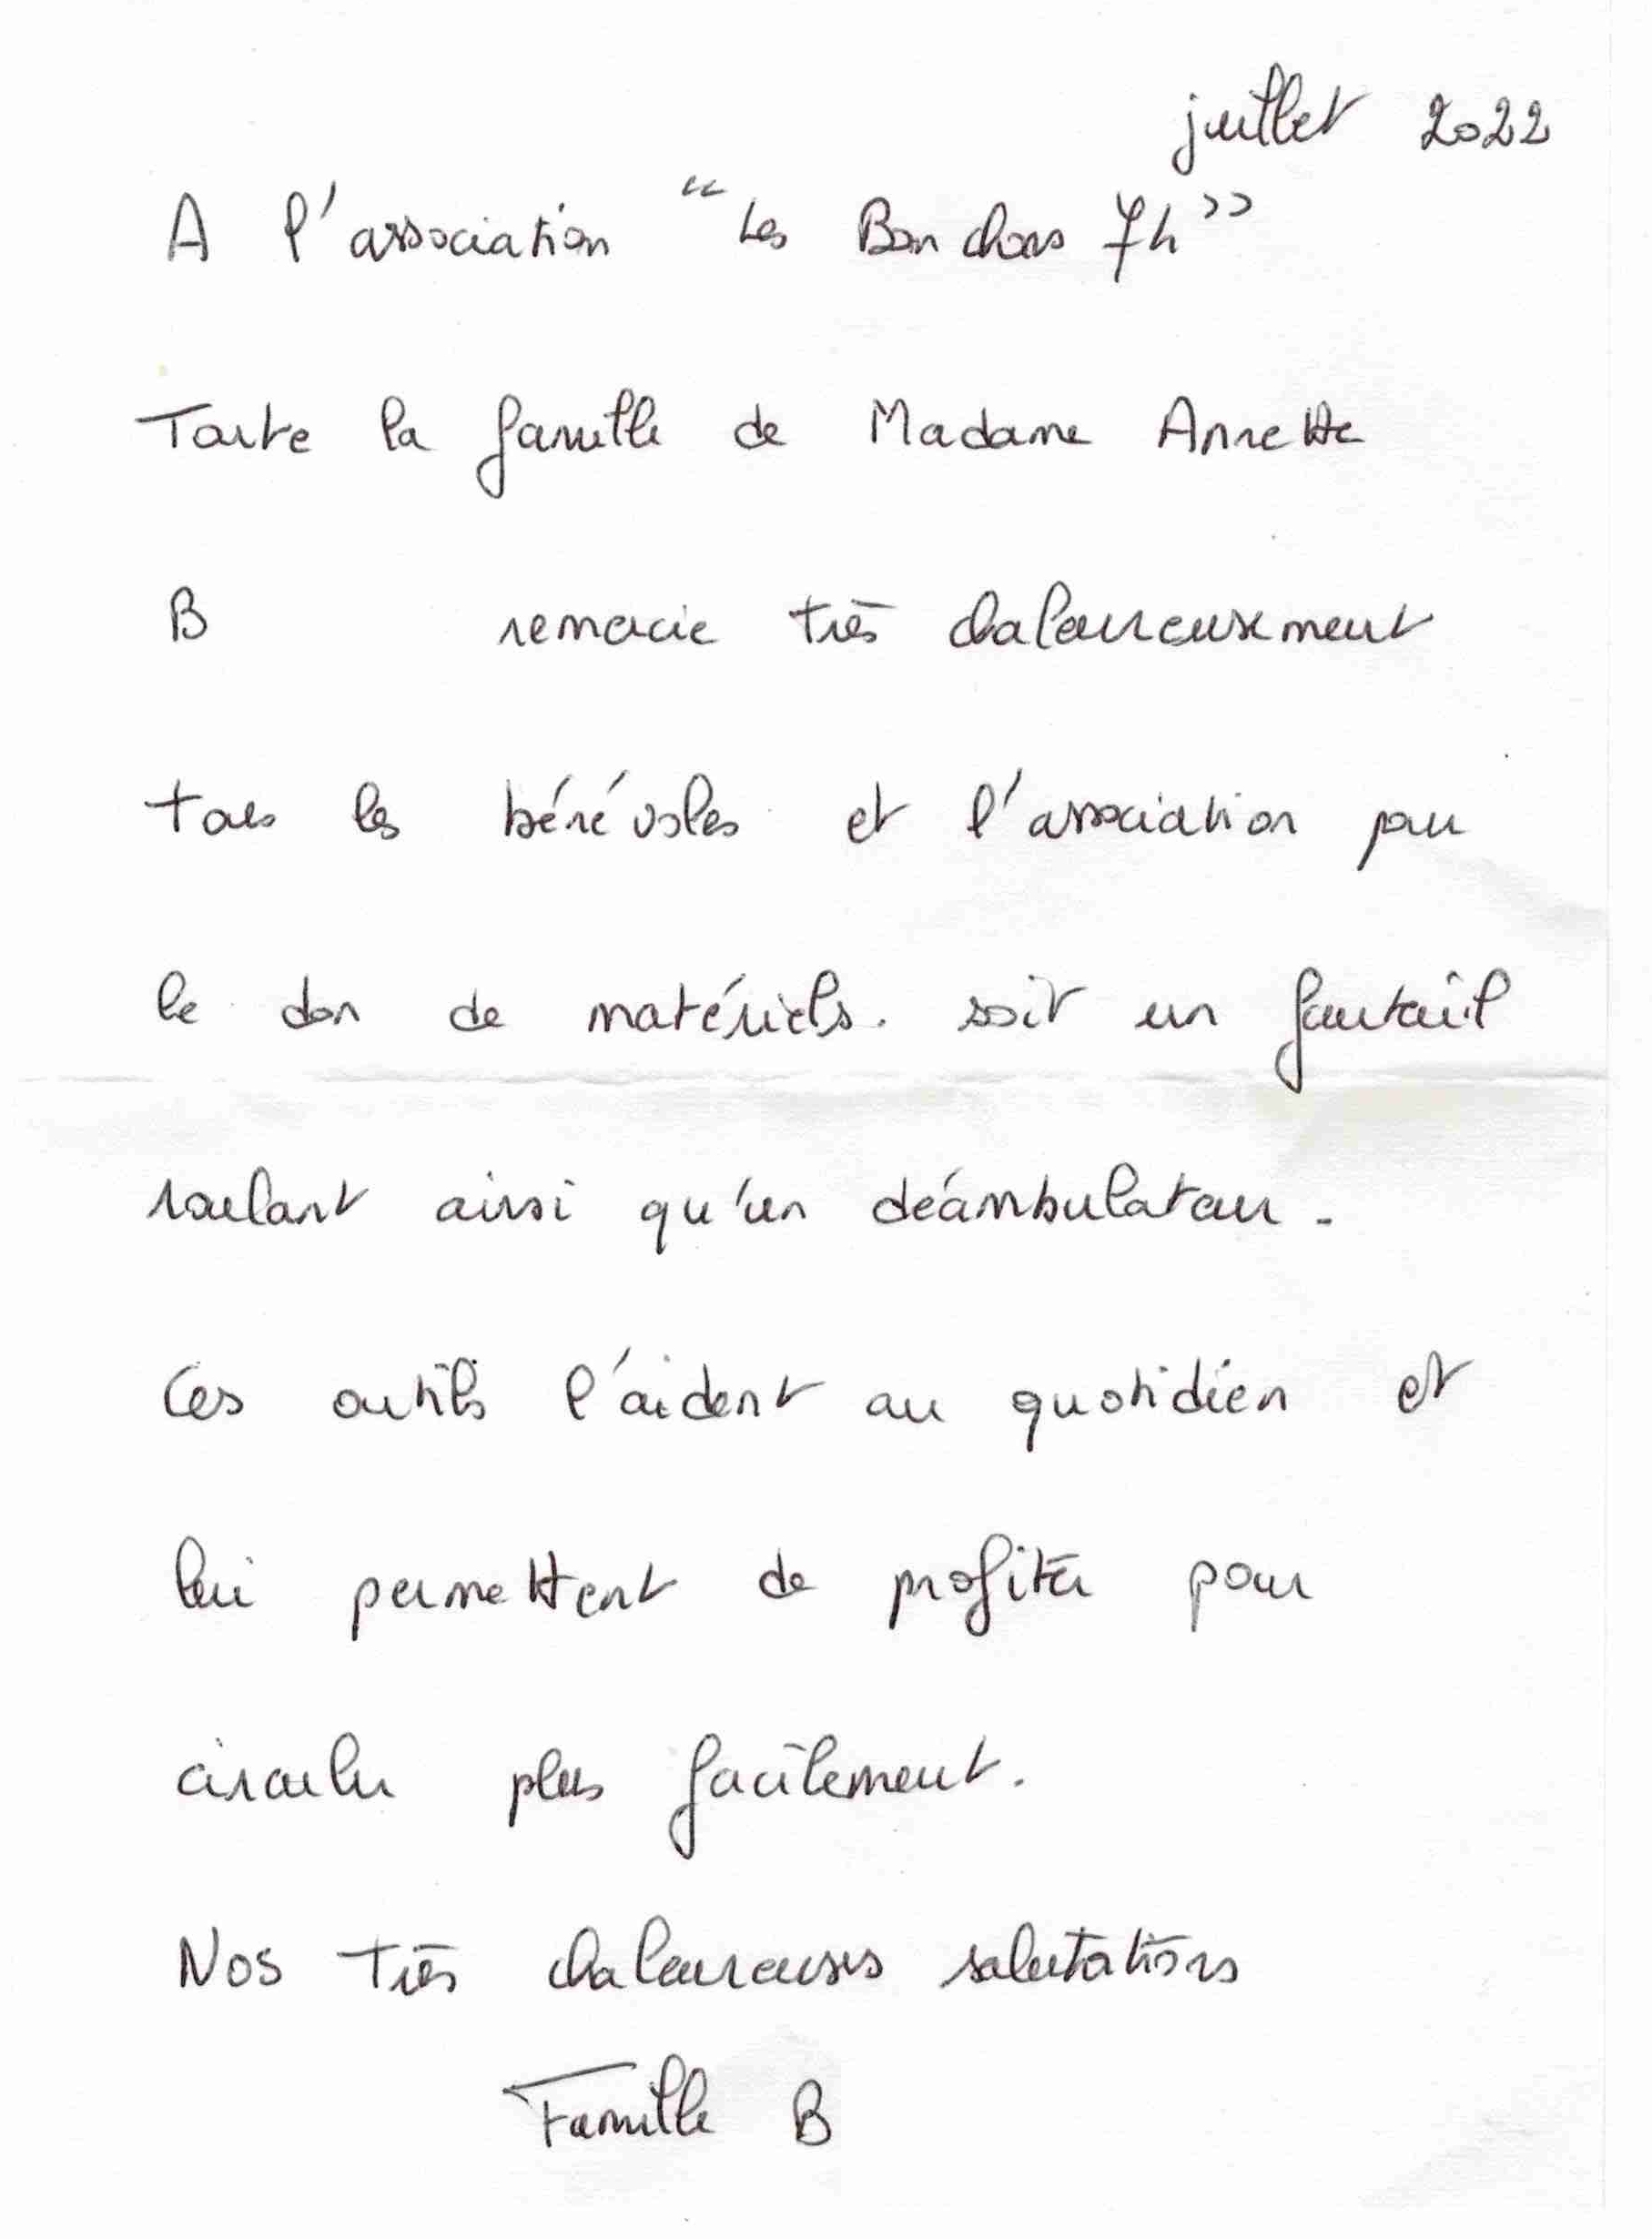 juillet 2022
A l'association "Les Bouchons 74"
Toute la famille de Madame Annette
B remercie très chaleureusement
tous les bénévoles et l'association pour
le don de matériels. soit un fauteuil
roulant ainsi qu'un déambulateur.
Ces outils l'aident au quotidien et
lui permettent de profiter pour
circuler plus facilement.
Nos très chaleureuses salutations
Famille B